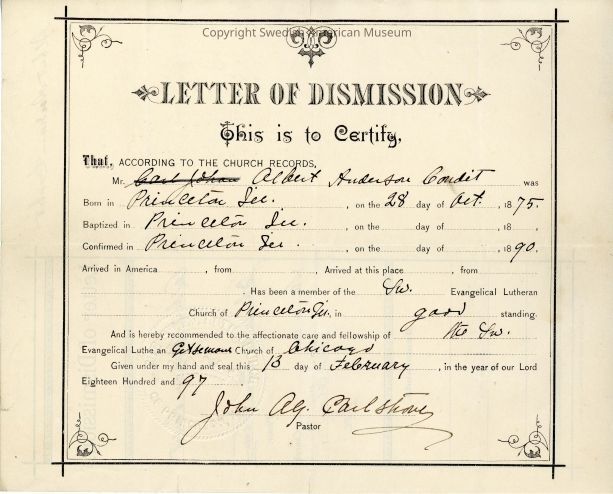 Copyright Swedish American Museum
LETTER OF DISMISSION
This is to Certify,
That, ACCORDING TO THE CHURCH RECORDS,
Mr. Carl Johan Albert Anderson Condit was
Born in Princeton Ill. , on the 28 day of Oct. , 1875.
Baptized in Princeton Ill. , on the day of , 18 .
Confirmed in Princeton Ill. , on the day of , 1890.
Arrived in America , from . Arrived at this place , from
. Has been a member of the Sw. Evangelical Lutheran
Church of Princeton Ill. in good standing.
And is hereby recommended to the affectionate care and fellowship of the Sw.
Evangelical Lutheran Church of Chicago
Given under my hand and seal this 13 day of February , in the year of our Lord
Eighteen Hundred and 97.
John
Pastor